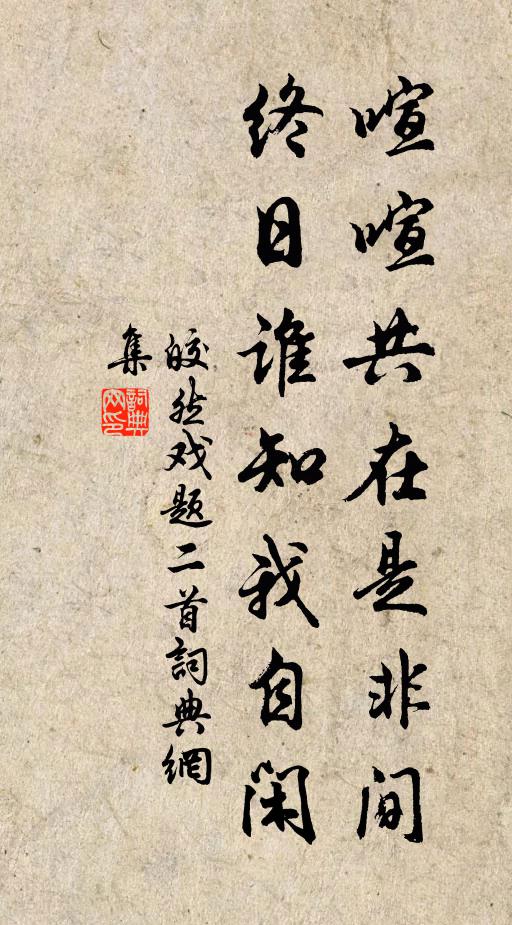 喧喧共在是非间
终日谁知我自闲
皎然戏题二首詞典網
集
詞典網印